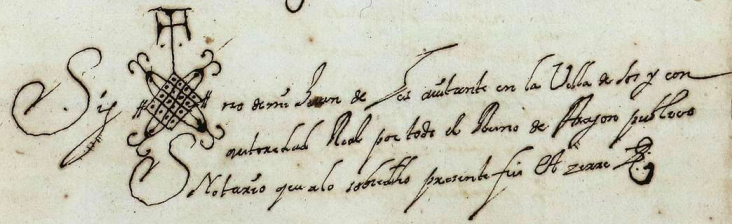 Sig no de mi Juan de Les auitante en la Villa de sos y con
autoredad Real por todo el Reino de Aragon publico
Notario que a lo sobredho presente fui Et zerre